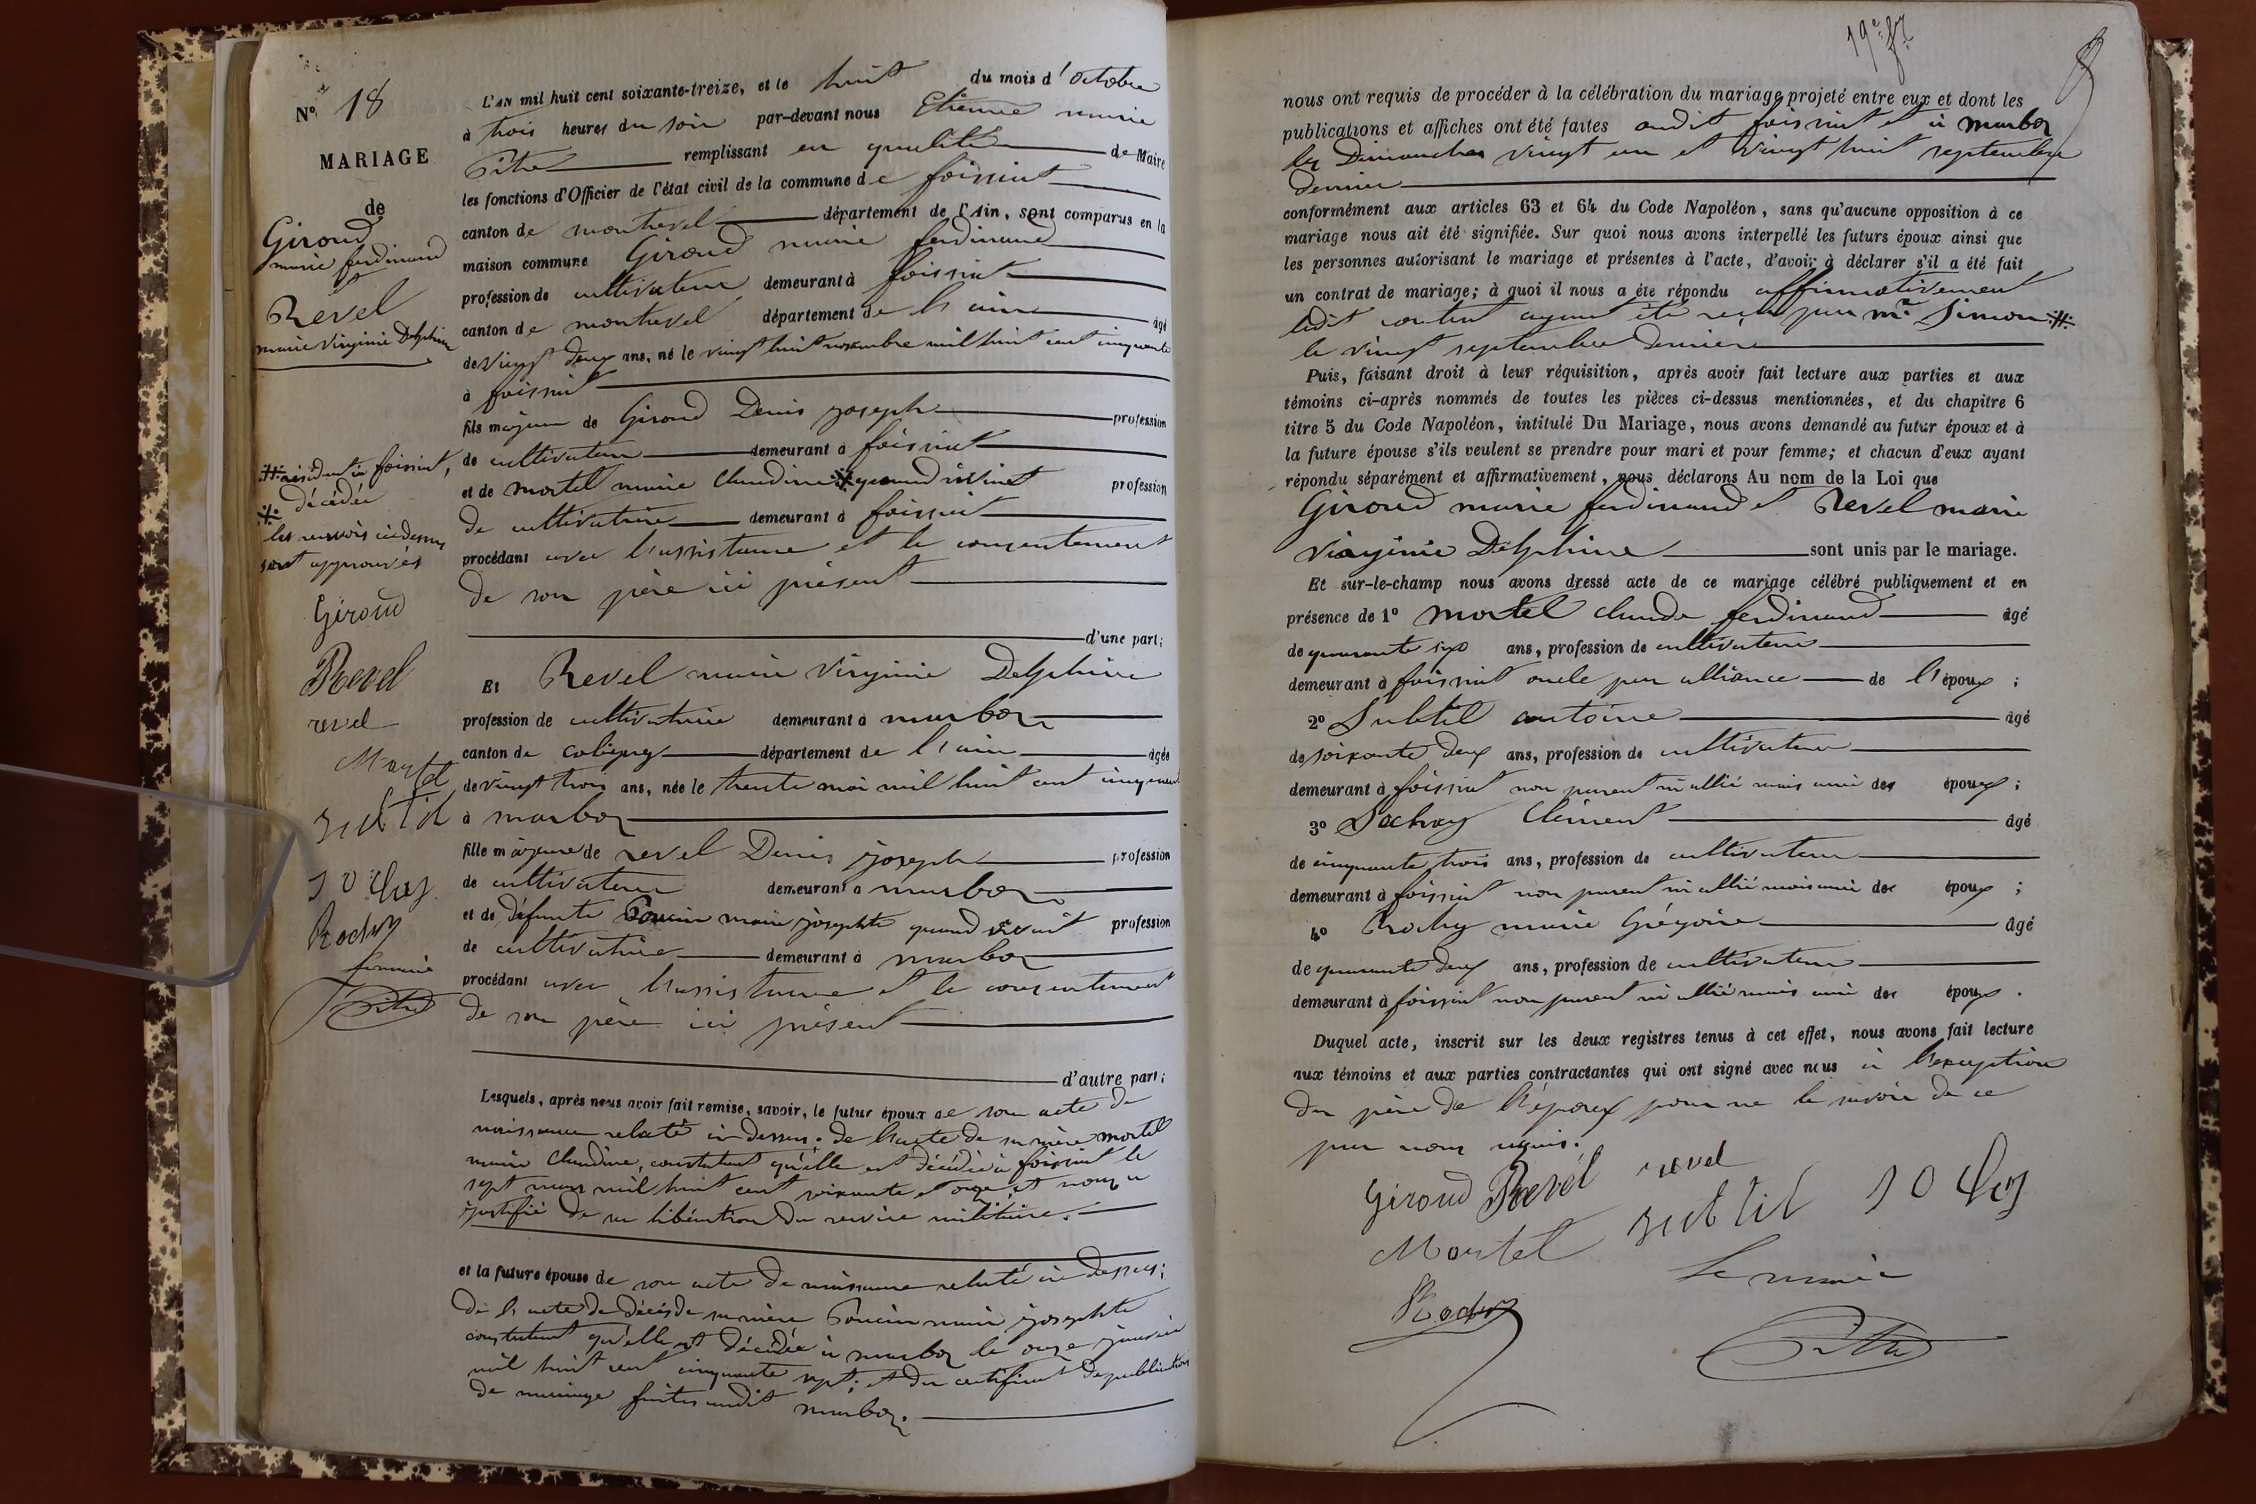 N° 18
MARIAGE
de
Giroud
marie ferdinand
et
Revel
marie Virginie Delphine
L'AN mil huit cent soixante-treize, et le huit du mois d'octobre
à trois heures du soir par-devant nous Etienne marie
Pitre remplissant en qualité de Maire
les fonctions d'Officier de l'état civil de la commune de foissiat
canton de montrevel département de l'Ain, sont comparus en la
maison commune Giroud marie ferdinand
profession de cultivateur demeurant à foissiat
canton de montrevel département de l'ain âgé
de vingt deux ans, né le vingt huit novembre mil huit cent cinquante
à foissiat
fils majeur de Giroud Denis joseph profession
de cultivateur demeurant à foissiat
et de mortel marie Claudine ⁜ quand vivait profession
de cultivatrice demeurant à foissiat
procédant avec l'assistance et le consentement
de son père ici présent
d'une part;
Et Revel marie Virginie Delphine
profession de cultivatrice demeurant à marboz
canton de coligny département de l'ain âgée
de vingt trois ans, née le trente mai mil huit cent cinquante
à marboz
fille majeure de revel Denis joseph profession
de cultivateur demeurant à marboz
et de défunte Poncin marie josephte quand vivait profession
de cultivatrice demeurant à marboz
procédant avec l'assistance et le consentement
de son père ici présent
d'autre part;
Lesquels, après nous avoir fait remise, savoir, le futur époux de son acte de
naissance relaté ci dessus. de l'acte de sa mère mortel
marie Claudine, constatant qu'elle est décédée à foissiat le
sept mars mil huit cent soixante et onze, et nous a
justifié de sa libération du service militaire.
et la future épouse de son acte de naissance relaté ci dessus;
de l'acte de décès de sa mère Poncin marie josephte
constatant qu'elle est décédée à marboz le onze janvier
mil huit cent cinquante sept; et du certificat de publications
de mariage faites audit marboz.
# résidant à foissiat,
⁜ décédée
les renvois ci dessus
sont approuvés
Giroud
Revel
revel
Mortel
subtil
sochay
Rochy
le maire
Pitre
19e
nous ont requis de procéder à la célébration du mariage projeté entre eux et dont les
publications et affiches ont été faites audit foissiat et à marboz
les Dimanches vingt un et vingt huit septembre
dernier
conformément aux articles 63 et 64 du Code Napoléon, sans qu'aucune opposition à ce
mariage nous ait été signifiée. Sur quoi nous avons interpellé les futurs époux ainsi que
les personnes autorisant le mariage et présentes à l'acte, d'avoir à déclarer s'il a été fait
un contrat de mariage; à quoi il nous a été répondu affirmativement
ledit contrat ayant été reçu par me Simon #
le vingt septembre dernier
Puis, faisant droit à leur réquisition, après avoir fait lecture aux parties et aux
témoins ci-après nommés de toutes les pièces ci-dessus mentionnées, et du chapitre 6
titre 5 du Code Napoléon, intitulé Du Mariage, nous avons demandé au futur époux et à
la future épouse s'ils veulent se prendre pour mari et pour femme; et chacun d'eux ayant
répondu séparément et affirmativement, nous déclarons Au nom de la Loi que
Giroud marie ferdinand et Revel marie
Virginie Delphine sont unis par le mariage.
Et sur-le-champ nous avons dressé acte de ce mariage célébré publiquement et en
présence de 1° mortel claude ferdinand âgé
de quarante six ans, profession de cultivateur
demeurant à foissiat oncle par alliance de l'époux;
2° Subtil antoine âgé
de soixante deux ans, profession de cultivateur
demeurant à foissiat non parent ni allié mais ami des époux;
3° Sochay Clément âgé
de cinquante trois ans, profession de cultivateur
demeurant à foissiat non parent ni allié mais ami des époux;
4° Rochy marie Grégoire âgé
de quarante deux ans, profession de cultivateur
demeurant à foissiat non parent ni allié mais ami des époux.
Duquel acte, inscrit sur les deux registres tenus à cet effet, nous avons fait lecture
aux témoins et aux parties contractantes qui ont signé avec nous à l'exception
du père de l'époux pour ne le savoir de ce
par nous requis.
Giroud Revel revel
Mortel subtil sochay
Rochy Le maire
Pitre